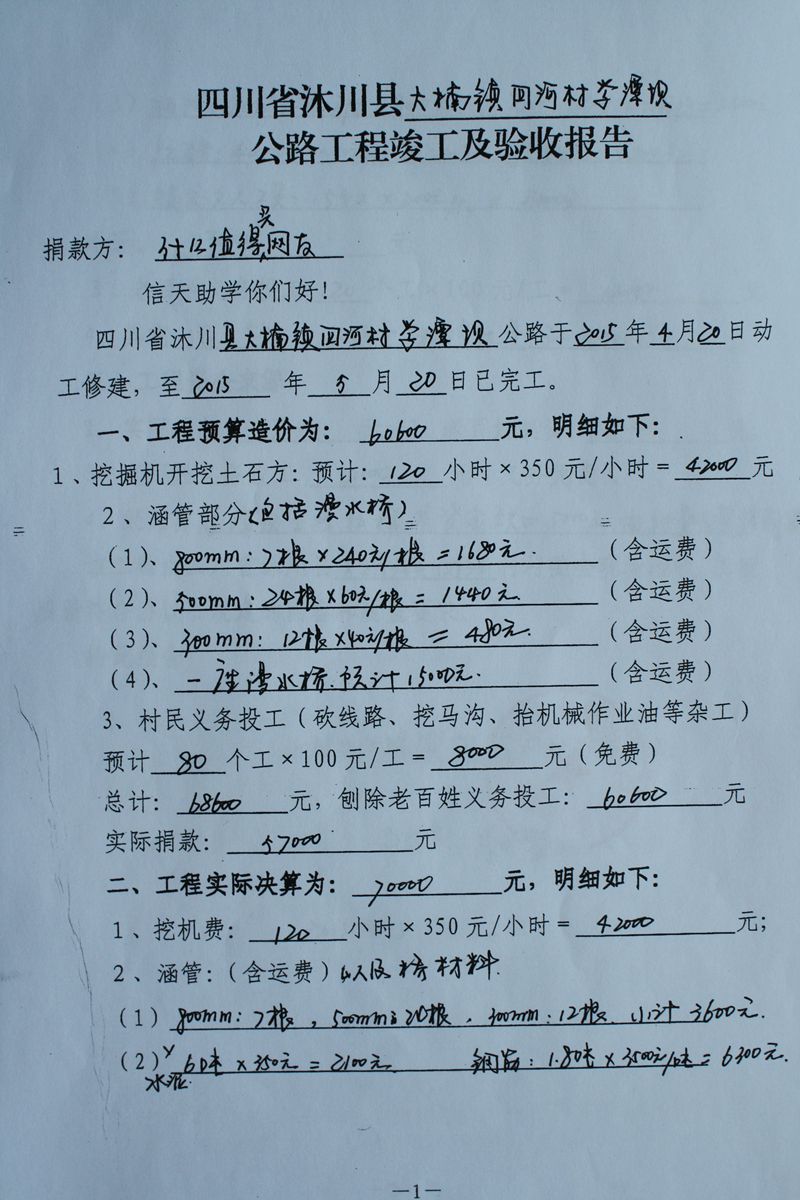 四川省沐川县大楠镇四河村学潭坝
公路工程竣工及验收报告
捐款方：什么值得买网友
信天助学你们好！
四川省沐川县大楠镇四河村学潭坝公路于2015年4月20日动
工修建，至2015年5月20日已完工。
一、工程预算造价为：60600元，明细如下：
1、挖掘机开挖土石方：预计：120小时×350元/小时=42000元
2、涵管部分（包括漫水桥）
(1)、800mm：7根×240元/根=1680元.（含运费）
(2)、500mm：24根×60元/根=1440元（含运费）
(3)、300mm：12根×40元/根=480元.（含运费）
(4)、一座漫水桥.预计15000元.（含运费）
3、村民义务投工（砍线路、挖马沟、抬机械作业油等杂工）
预计80个工×100元/工=8000元（免费）
总计：68600元，刨除老百姓义务投工：60600元
实际捐款：57000元
二、工程实际决算为：70000元，明细如下：
1、挖机费：120小时×350元/小时=42000元；
2、涵管：（含运费）以及桥材料
(1) 800mm：7根，500mm：24根，300mm：12根.小计3600元.
(2) 水泥 6吨×350元=2100元 钢筋：1.80吨×3500元/吨=6300元.
—1—